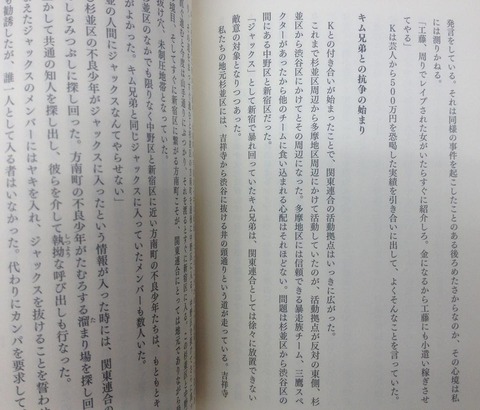 発言をしている。それは同様の事件を起こしたことのある後ろめたさからなのか、その心境は私
には測りかねる。
「工藤、周りでレイプされた女がいたらすぐに紹介しろ、金になるから工藤にも小遣い稼ぎさせ
てやる」
Kは芸人から500万円を恐喝した実績を引き合いに出して、よくそんなことを言っていた。
キム兄弟との抗争の始まり
Kとの付き合いが始まったことで、関東連合の活動拠点はいっきに広がった。
これまで杉並区周辺から多摩地区周辺にかけて活動していたのが、活動拠点が反対の東側、杉
並区から渋谷区にかけてとその周辺になった。多摩地区には信頼できる暴走族チーム、三鷹スペ
クターがあったから他のチームに食い込まれる心配はそれほどない。問題は杉並区から渋谷区の
間にある中野区と新宿区だった。
「ジャックス」として新宿で暴れ回っていたキム兄弟は、関東連合としては徐々に放置できない
敵意の対象となりつつあった。
私たちの地元杉並区には、吉祥寺から渋谷に抜ける井の頭通りという道が走っている。吉祥寺
抜け穴の、未開拓地帯となっていた。
杉並区のなかでも限りなく中野区と新宿区に近い方南町の不良少年たちは、もともとキ
がよかった。キム兄弟と同じジャックスに入っていたメンバーも数人いた。
並区の人間にジャックスなんてやらせない」
杉並区の不良少年がジャックスに入ったという情報が入った時には、関東連合の
しらみつぶしに探し回った。方南町の不良少年がたむろする溜まり場を探し回
かして共通の知人を探し出し、彼らを介して執拗な呼び出しも行なった。
えたジャックスのメンバーにはヤキを入れ、ジャックスを抜けることを誓わせ
も勧誘したが、誰一人として入る者はいなかった。代わりにカンパを要求して